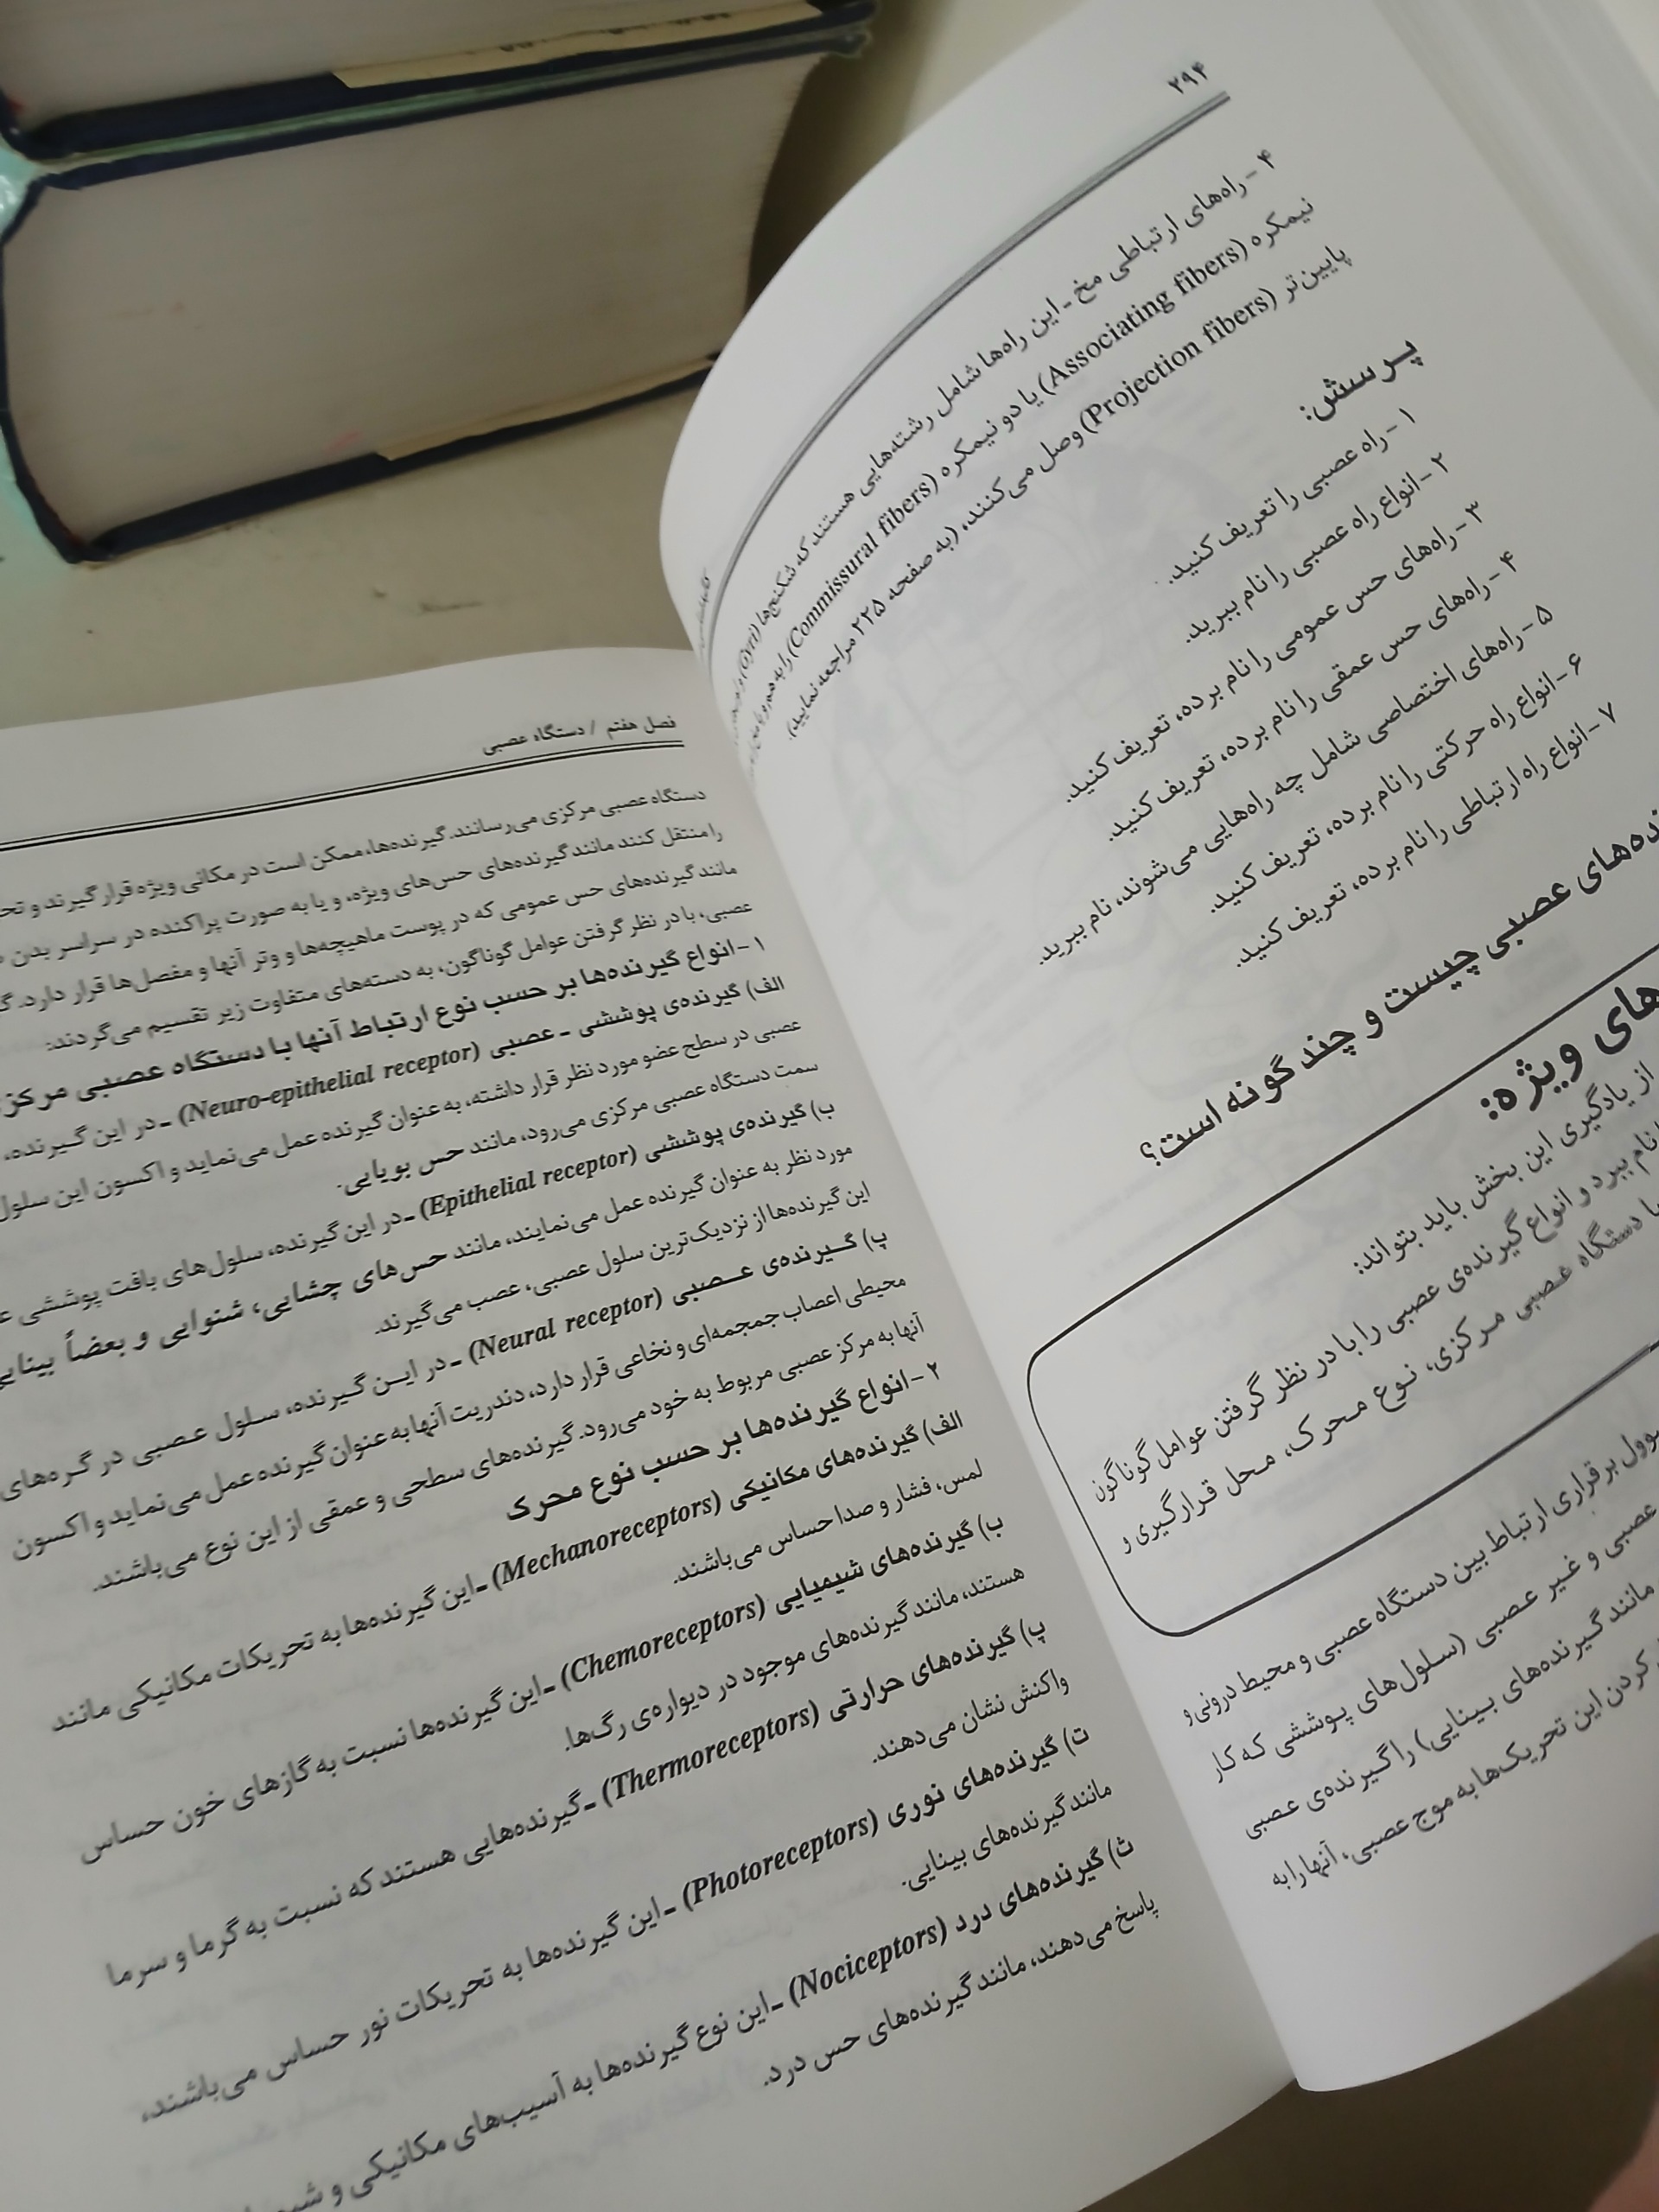 ۲۹۴
۴ - راه‌های ارتباطی مخ ـ این راه‌ها شامل رشته‌هایی هستند که شکنج‌ها (Gyri)
نیمکره (Associating fibers) یا دو نیمکره (Commissural fibers) را به هم و
پایین‌تر (Projection fibers) وصل می‌کنند، (به صفحه ۲۲۵ مراجعه نمایید).
پرسش:
۱ - راه عصبی را تعریف کنید.
۲ - انواع راه عصبی را نام ببرید.
۳ - راه‌های حس عمومی را نام برده، تعریف کنید.
۴ - راه‌های حس عمقی را نام برده، تعریف کنید.
۵ - راه‌های اختصاصی شامل چه راه‌هایی می‌شوند، نام ببرید.
۶ - انواع راه حرکتی را نام برده، تعریف کنید.
۷ - انواع راه ارتباطی را نام برده، تعریف کنید.
عصبی چیست و چند گونه است؟
های ویژه:
از یادگیری این بخش باید بتواند:
نام ببرد و انواع گیرنده‌ی عصبی را با در نظر گرفتن عوامل گوناگون
با دستگاه عصبی مرکزی، نوع محرک، محل قرارگیری و
برقراری ارتباط بین دستگاه عصبی و محیط درونی و
عصبی و غیر عصبی (سلول‌های پوششی که کار
مانند گیرنده‌های بینایی) را گیرنده‌ی عصبی
کردن این تحریک‌ها به موج عصبی، آنها را به
فصل هفتم / دستگاه عصبی
دستگاه عصبی مرکزی می‌رسانند. گیرنده‌ها، ممکن است در مکانی ویژه قرار گیرند و
را منتقل کنند مانند گیرنده‌های حس‌های ویژه، و یا به صورت پراکنده در سراسر بدن
مانند گیرنده‌های حس عمومی که در پوست ماهیچه‌ها و وتر آنها و مفصل‌ها قرار دارد.
عصبی، با در نظر گرفتن عوامل گوناگون، به دسته‌های متفاوت زیر تقسیم می‌گردند:
۱ - انواع گیرنده‌ها بر حسب نوع ارتباط آنها با دستگاه عصبی
الف) گیرنده‌ی پوششی ـ عصبی (Neuro-epithelial receptor) ـ در این گیرنده،
عصبی در سطح عضو مورد نظر قرار داشته، به عنوان گیرنده عمل می‌نماید و اکسون این سلول
سمت دستگاه عصبی مرکزی می‌رود، مانند حس بویایی.
ب) گیرنده‌ی پوششی (Epithelial receptor) ـ در این گیرنده، سلول‌های بافت پوششی
مورد نظر به عنوان گیرنده عمل می‌نمایند، مانند حس‌های چشایی، شنوایی و بعضاً
این گیرنده‌ها از نزدیک‌ترین سلول عصبی، عصب می‌گیرند.
پ) گیرنده‌ی عصبی (Neural receptor) ـ در این گیرنده، سلول عصبی در گره‌های
محیطی اعصاب جمجمه‌ای و نخاعی قرار دارد، دندریت آنها به عنوان گیرنده عمل می‌نماید و اکسون
آنها به مرکز عصبی مربوط به خود می‌رود. گیرنده‌های سطحی و عمقی از این نوع می‌باشند.
۲ - انواع گیرنده‌ها بر حسب نوع محرک
الف) گیرنده‌های مکانیکی (Mechanoreceptors) ـ این گیرنده‌ها به تحریکات مکانیکی مانند
لمس، فشار و صدا حساس می‌باشند.
ب) گیرنده‌های شیمیایی (Chemoreceptors) ـ این گیرنده‌ها نسبت به گازهای خون حساس
هستند، مانند گیرنده‌های موجود در دیواره‌ی رگ‌ها.
پ) گیرنده‌های حرارتی (Thermoreceptors) ـ گیرنده‌هایی هستند که نسبت به گرما و سرما
واکنش نشان می‌دهند.
ت) گیرنده‌های نوری (Photoreceptors) ـ این گیرنده‌ها به تحریکات نور حساس می‌باشند،
مانند گیرنده‌های بینایی.
ث) گیرنده‌های درد (Nociceptors) ـ این نوع گیرنده‌ها به آسیب‌های مکانیکی و
پاسخ می‌دهند، مانند گیرنده‌های حس درد.